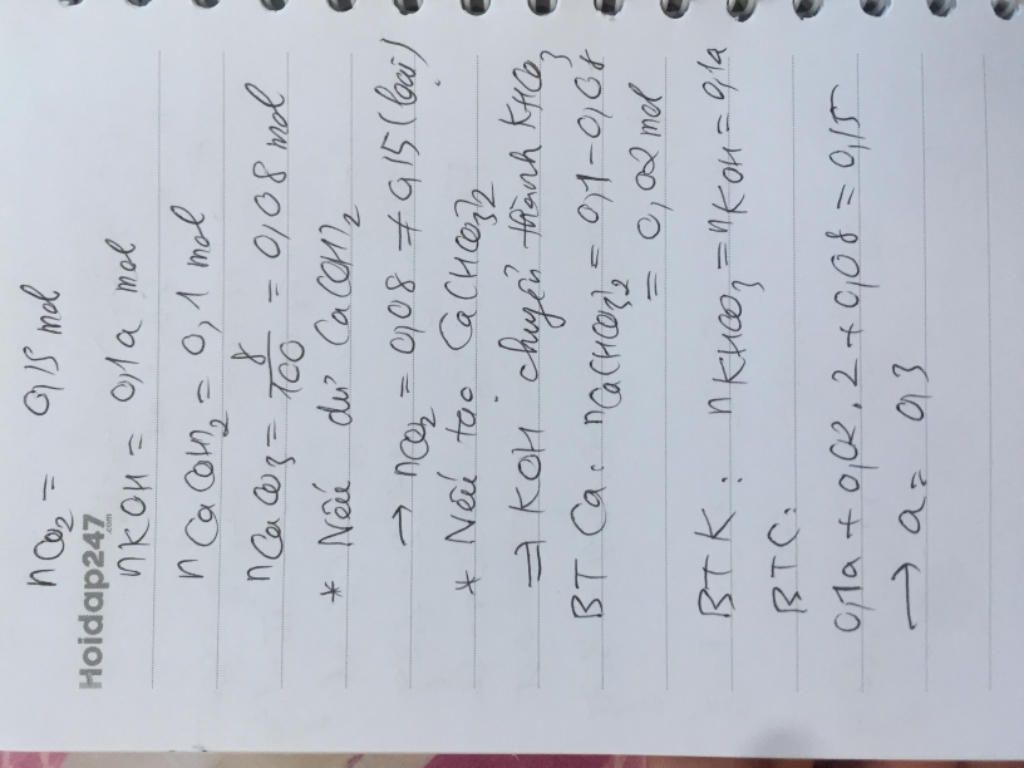 nCO2 = 0,15 mol
Hoidap247.com
nKOH = 0,1a mol
nCa(OH)2 = 0,1 mol
nCaCO3 = 8/100 = 0,08 mol
* Nếu dư Ca(OH)2
→ nCO2 = 0,08 ≠ 0,15 (loại)
* Nếu tạo Ca(HCO3)2
⇒ KOH chuyển thành KHCO3
BT Ca: nCa(HCO3)2 = 0,1 - 0,08
= 0,02 mol
BT K: nKHCO3 = nKOH = 0,1a
BT C:
0,1a + 0,02.2 + 0,08 = 0,15
→ a = 0,3